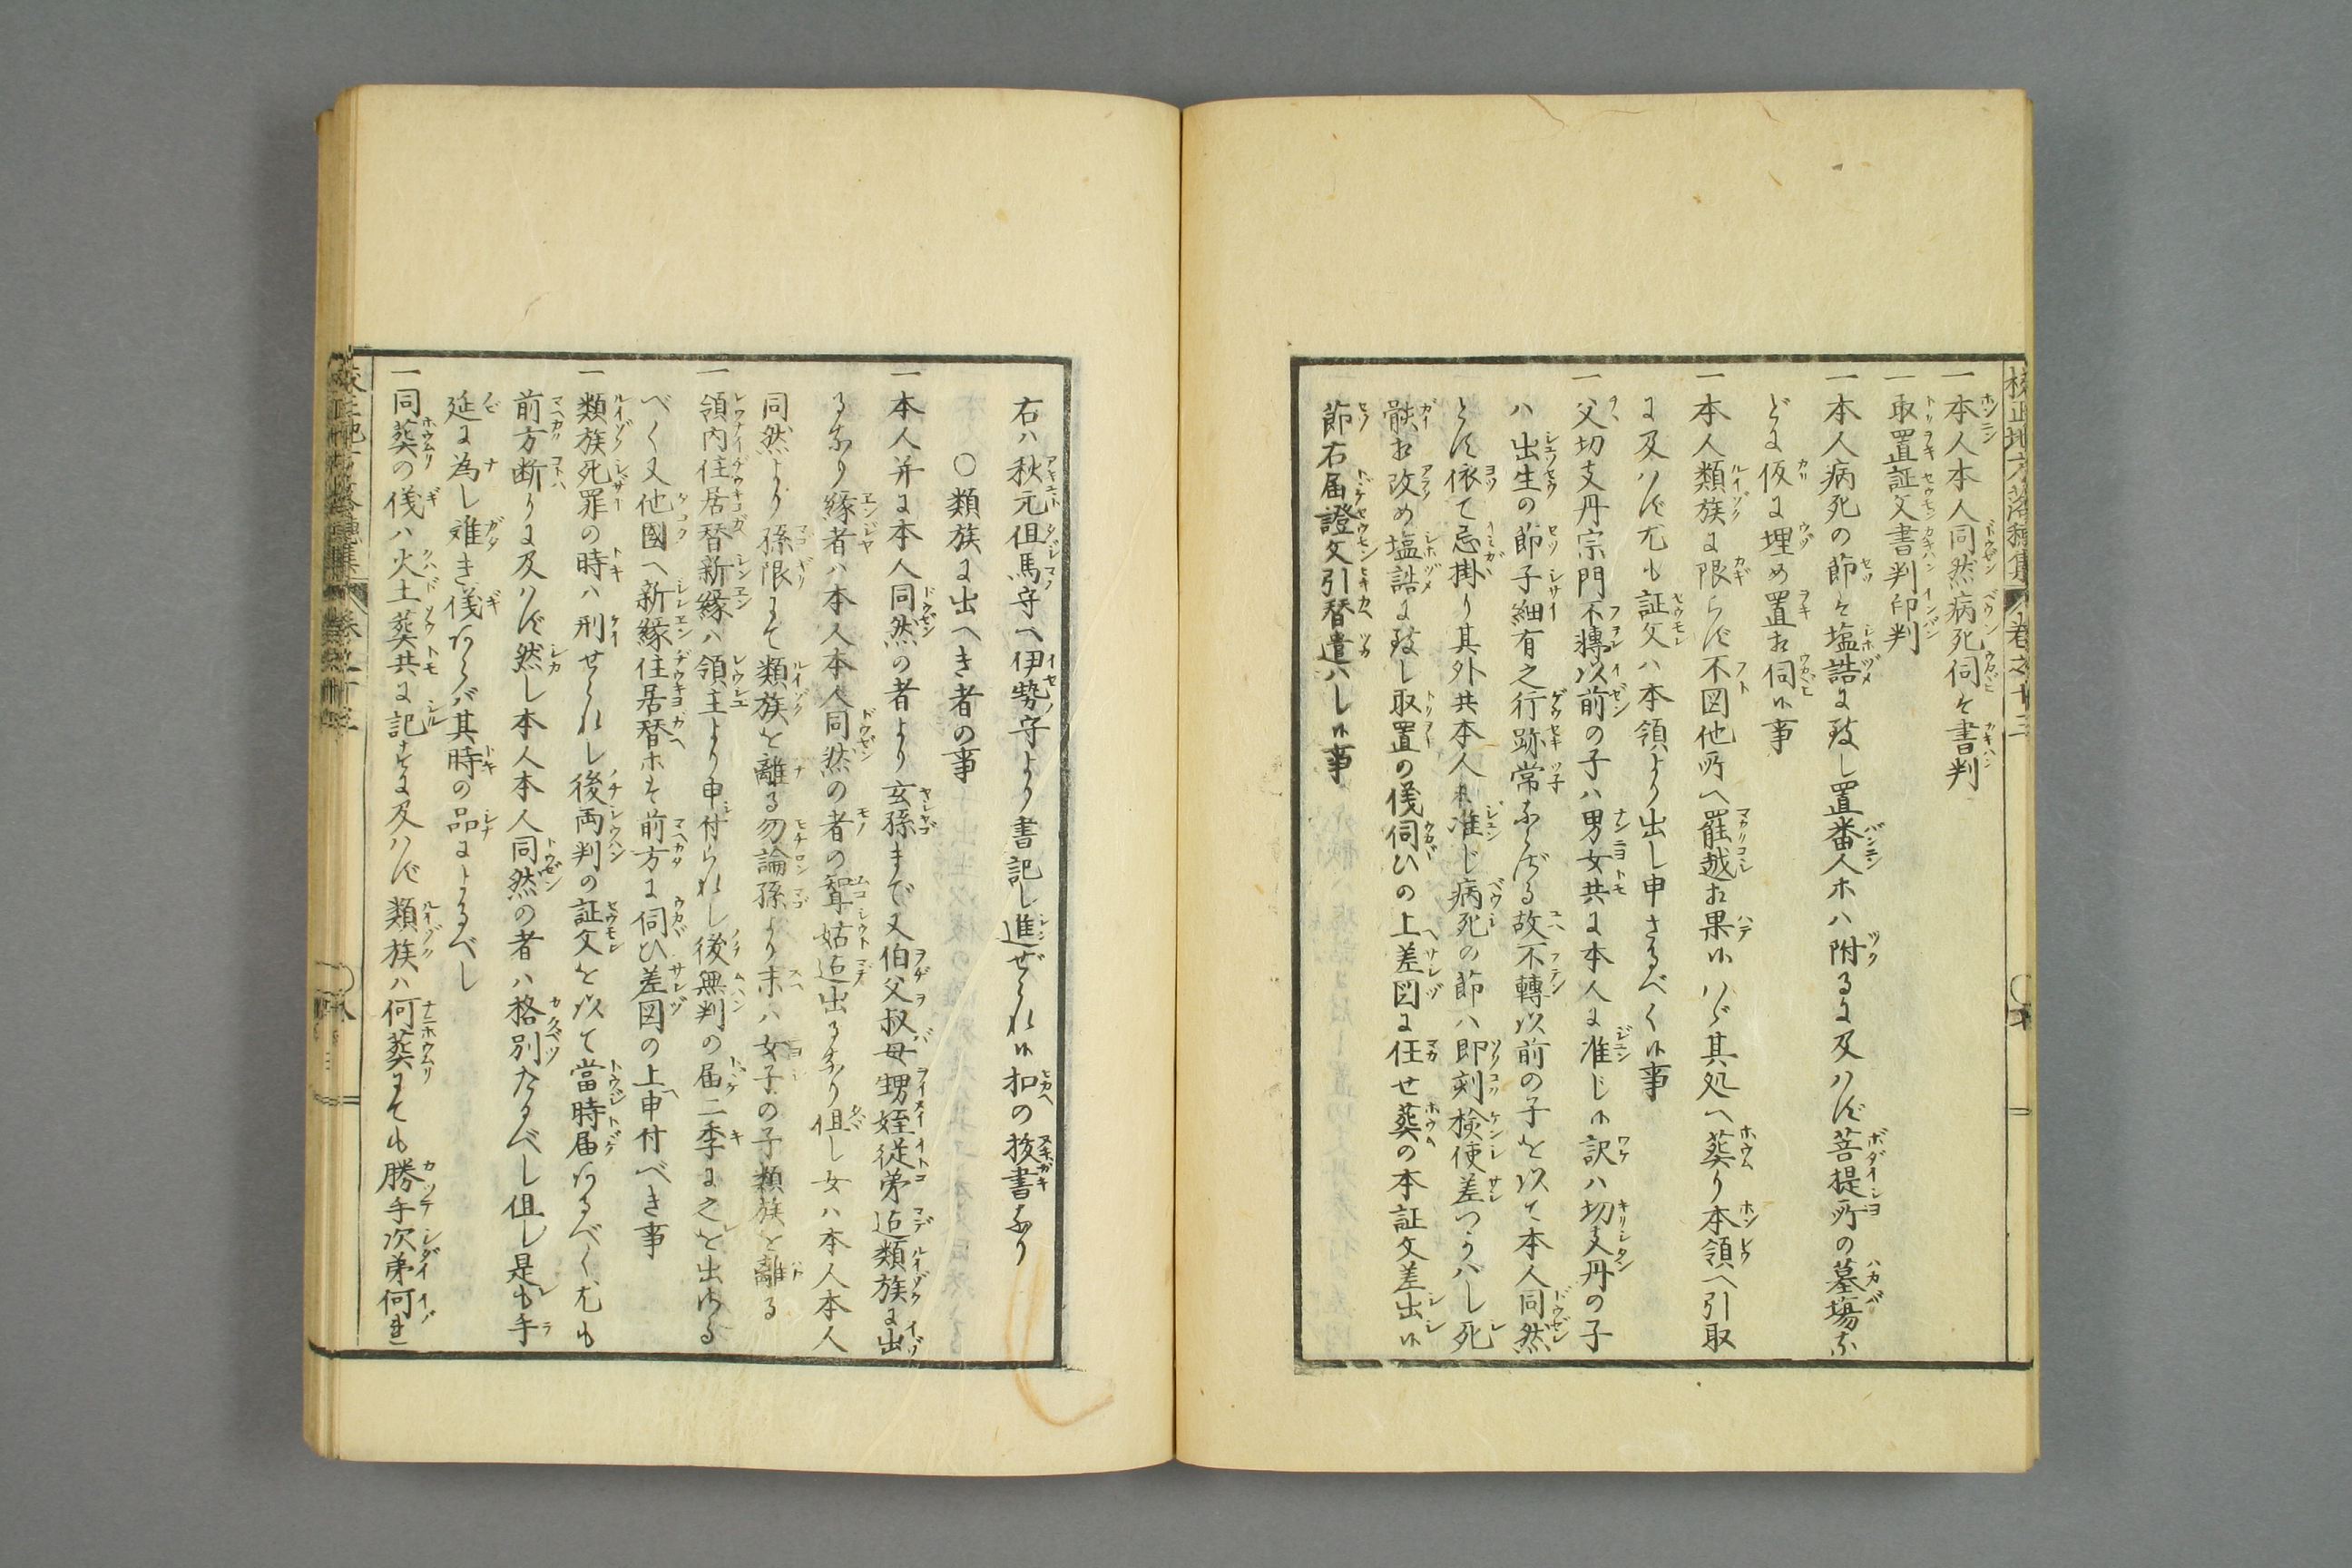 校正地方落穂集 巻之十三
一本人本人同然病死伺そ書判
一取置証文書判印判
一本人病死の節そ塩詰に致し置番人ホハ附るに及ハず菩提所の墓場な
どに仮に埋め置お伺候事
一本人類族に限らず不図他所へ罷越お果候ハヾ其処へ葬り本領へ引取
に及ハず尤も証文ハ本領より出し申さるべく候事
一父切支丹宗門不轉以前の子ハ男女共に本人に准じ候訳ハ切支丹の子
ハ出生の節子細有之行跡常ならざる故不轉以前の子を以て本人同然
とす依て忌掛り其外共本人に准じ病死の節ハ即刻検使差つかハし死
骸お改め塩詰に致し取置の儀伺ひの上差図に任せ葬の本証文差出候
節右届證文引替遣ハし候事
右ハ秋元但馬守へ伊勢守より書記し進ぜられ候扣の抜書なり
○類族に出へき者の事
一本人并に本人同然の者より玄孫まで又伯父叔母甥姪従弟迄類族に出
るなり縁者ハ本人本人同然の者の聟姑迄出るなり但し女ハ本人本人
同然より孫限にて類族を離る勿論孫より末ハ女子の子類族を離る
一領内住居替新縁ハ領主より申付られし後無判の届二季に之を出さる
べく又他國へ新縁住居替ホそ前方に伺ひ差図の上申付べき事
一類族死罪の時ハ刑せられし後両判の証文を以て當時届あるべく尤も
前方断りに及ハず然し本人本人同然の者ハ格別たるべし但し是も手
延に為し難き儀あらバ其時の品によるべし
一同葬の儀ハ火土葬共に記すに及ハず類族ハ何葬にても勝手次第何れ